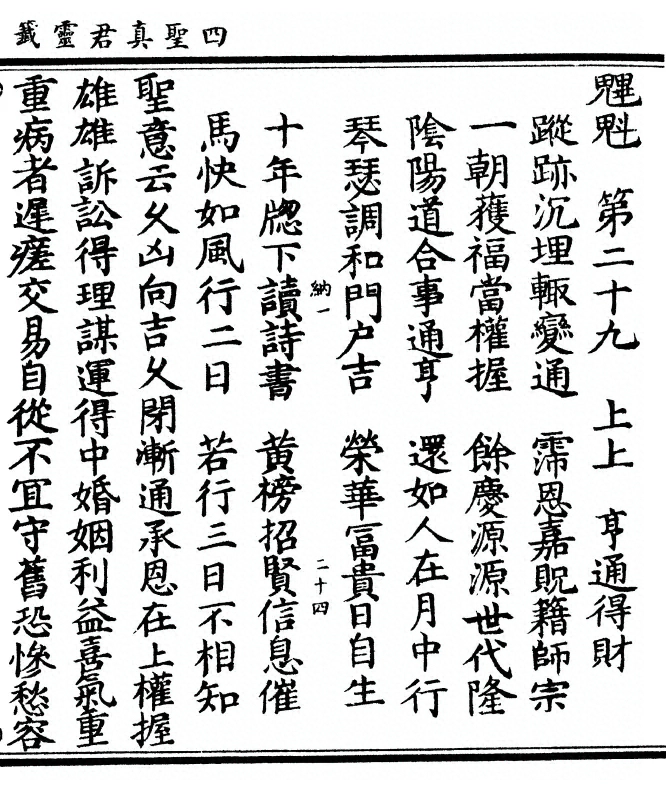 四聖真君靈籤
魓魁　第二十九　上上　亨通得財
蹤跡沉埋輙變通　霈恩嘉貺籍師宗
一朝獲福當權握　餘慶源源世代隆
陰陽道合事通亨　還如人在月中行
琴瑟調和門户吉　榮華冨貴日自生
納一　二十四
十年牕下讀詩書　黄榜招賢信息催
馬快如風行二日　若行三日不相知
聖意云久凶向吉久閉漸通承恩在上權握
雄雄訴訟得理謀運得中婚姻利益喜氣重
重病者遲瘥交易自從不冝守舊恐慘愁容